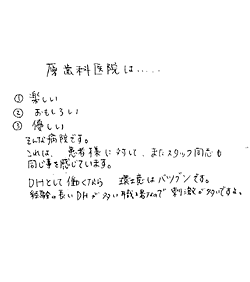 原歯科医院は.....
① 楽しい
② おもしろい
③ 優しい
そんな病院です。
これは、患者様に対して、またスタッフ同志も
同じ事を感じています。
DHとして働くなら 環境度はバツグンです。
経験の長いDHが多い職場なので 刺激が多いですよ。